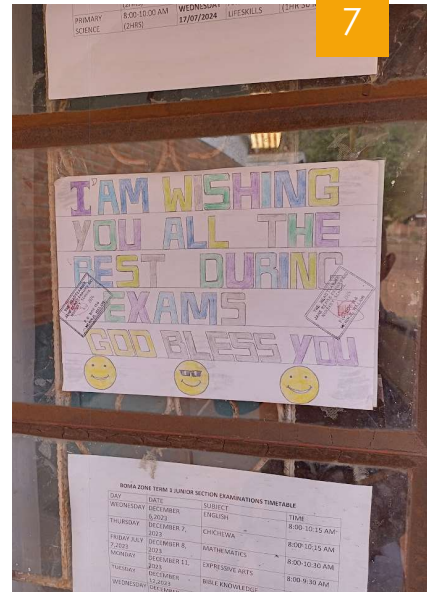 7
PRIMARY SCIENCE 8:00-10:00 AM (2HRS) WEDNESDAY 17/07/2024 LIFESKILLS
I'AM WISHING
YOU ALL THE
BEST DURING
EXAMS
GOD BLESS YOU
BOMA ZONE TERM 1 JUNIOR SECTION EXAMINATIONS TIMETABLE
DAY DATE SUBJECT TIME
WEDNESDAY DECEMBER 6,2023 ENGLISH 8:00-10:15 AM
THURSDAY DECEMBER 7, 2023 CHICHEWA 8:00-10:15 AM
FRIDAY JULY 7,2023 DECEMBER 8, 2023 MATHEMATICS 8:00-10:30 AM
MONDAY DECEMBER 11, 2023 EXPRESSIVE ARTS 8:00-9:30 AM
TUESDAY DECEMBER 12,2023 BIBLE KNOWLEDGE
WEDNESDAY DECEMBER